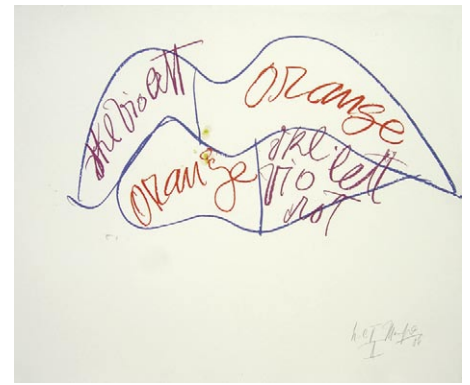 dkl violett
orange
orange
dkl.
violett
rot